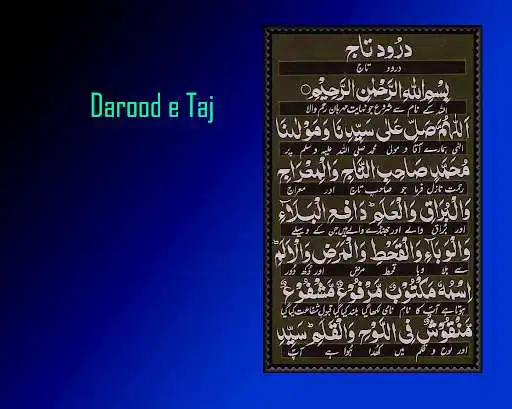 Darood e Taj
درود تاج
درود تاج
بِسْمِ اللهِ الرَّحْمٰنِ الرَّحِيْمِ
اللہ کے نام سے شروع جو نہایت مہربان رحم والا
اَللّٰهُمَّ صَلِّ عَلٰى سَيِّدِنَا وَمَوْلٰينَا
الٰہی ہمارے آقا و مولیٰ محمد صلی اللہ علیہ وسلم پر
مُحَمَّدٍ صَاحِبِ التَّاجِ وَالْمِعْرَاجِ
رحمت نازل فرما جو صاحب تاج اور معراج
وَالْبُرَاقِ وَالْعَلَمِ دَافِعِ الْبَلَاءِ
اور براق والے اور جھنڈے والے ہیں جن کے وسیلے
وَالْوَبَاءِ وَالْقَحْطِ وَالْمَرَضِ وَالْاَلَمِ
سے بلا وبا قحط مرض اور دکھ دور
اِسْمُهٗ مَكْتُوْبٌ مَّرْفُوْعٌ مَّشْفُوْعٌ
ہوتا ہے آپ کا نام نامی لکھا گیا بلند کیا گیا قبول شفاعت کیا گیا
مَّنْقُوْشٌ فِى اللَّوْحِ وَالْقَلَمِ سَيِّدِ
اور لوح و قلم میں کھدا ہوا ہے آپ